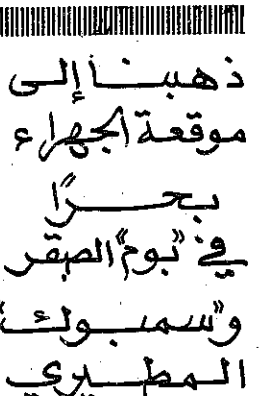 ذهبنا إلى
موقعة الجهراء
بحرًا
في "بوم" الصقر
و"سمبوك"
المطيري